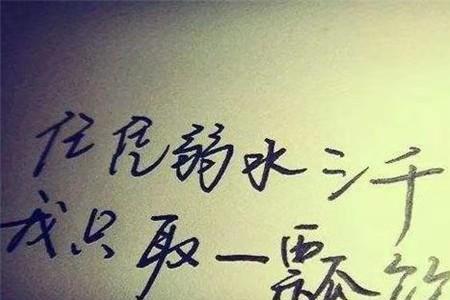 任凭弱水三千
我只取一瓢饮